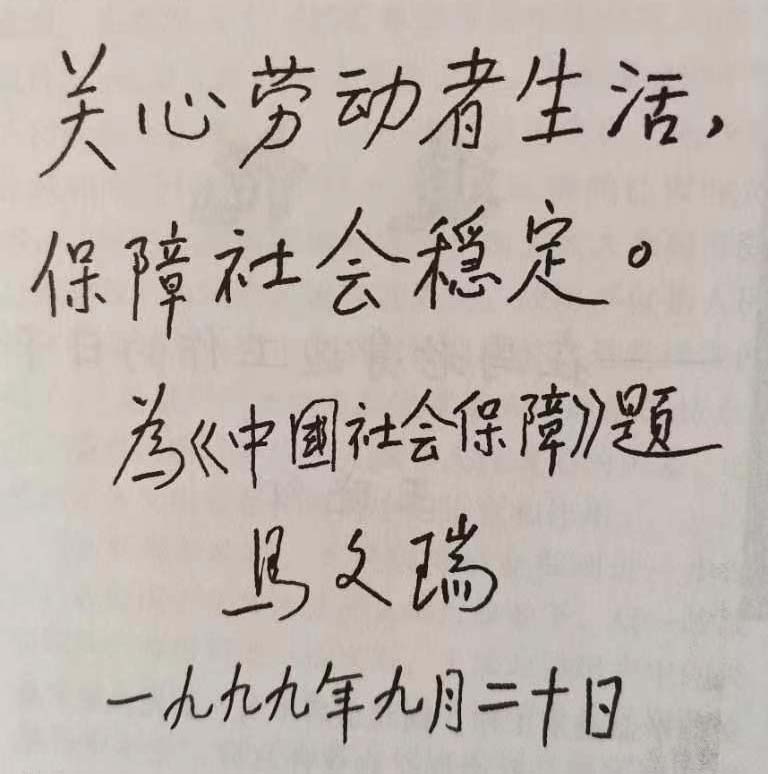 关心劳动者生活，
保障社会穩定。
為《中國社会保障》题
马文瑞
一九九九年九月二十日